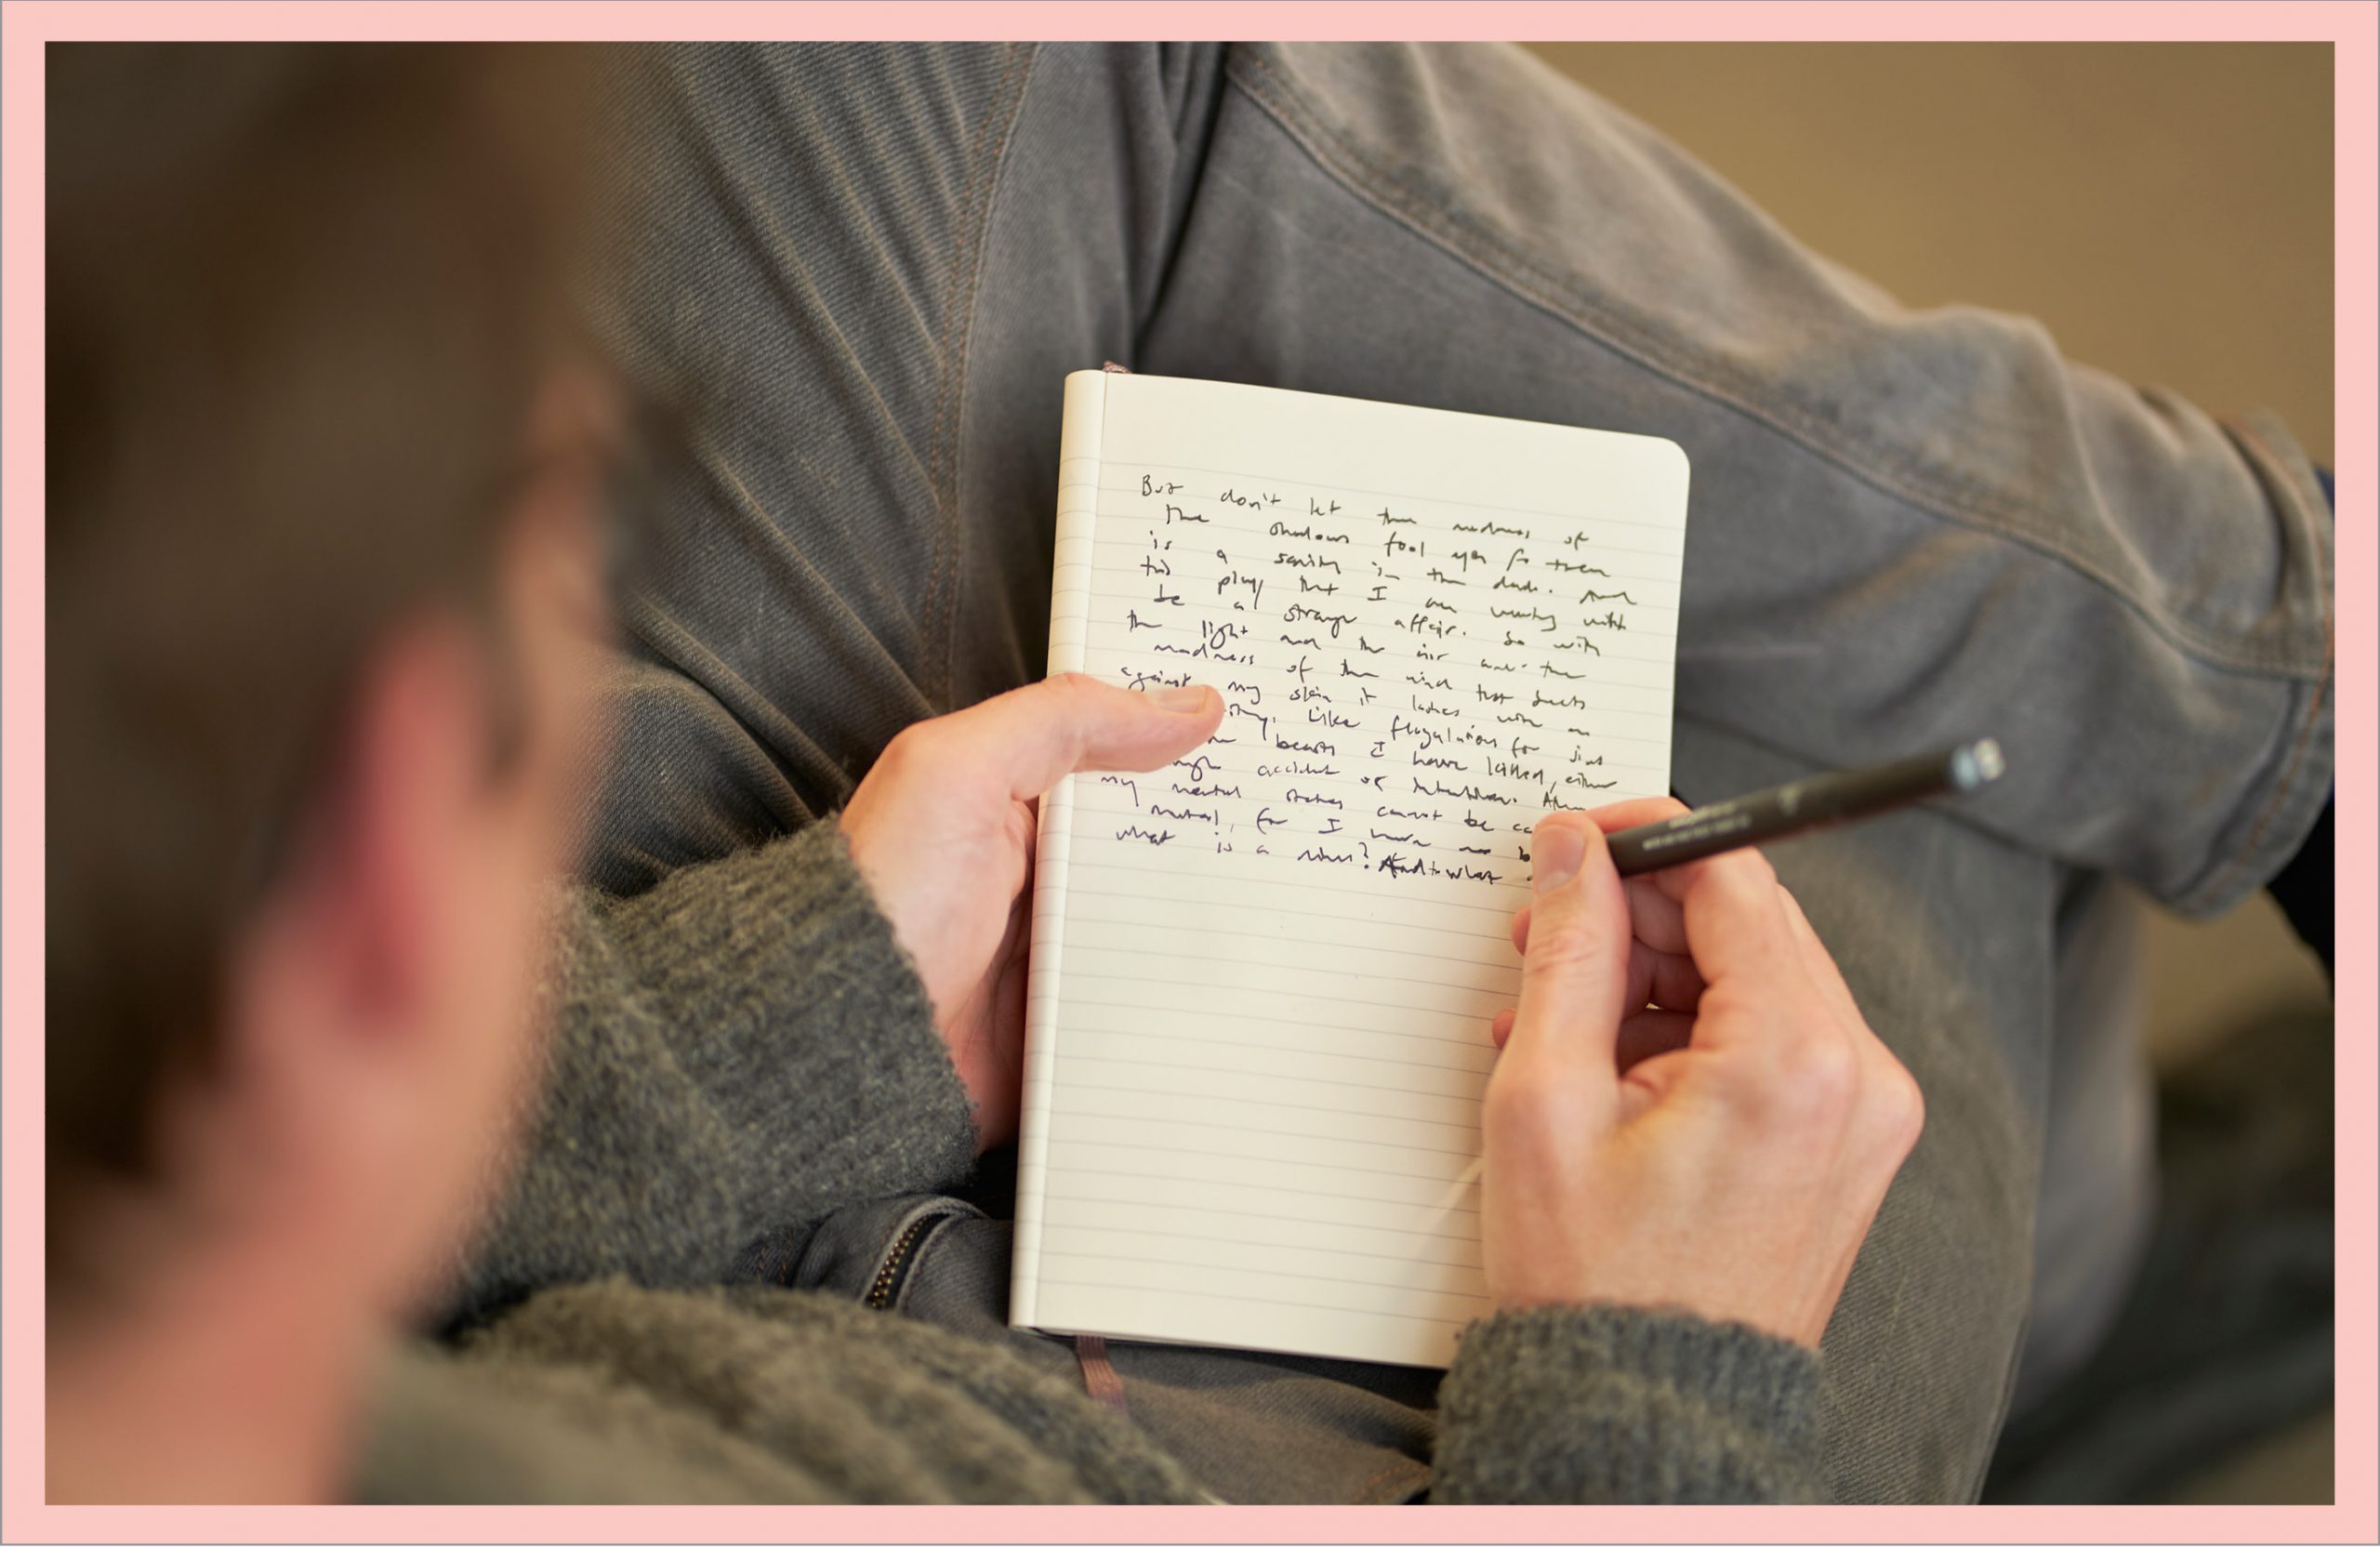 But don't let the madness of
the shadows fool you for there
is a sanity in the dark. And
this play that I am writing with
be a strange affair. So with
the light and the air and the
madness of the wind that
against my skin it lashes with an
Like flagulations for sins
beasts I have killed, either
accident or intention. Also
my mental states cannot be
for I have no
what is a sin? And what